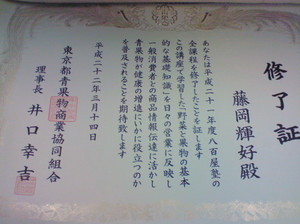 修了証
藤岡輝好殿
あなたは平成二十一年度八百屋塾の
全課程を修了したことを証します
この講座で学習した「野菜と果物の基本
的な基礎知識」を日々の営業に反映し
一般消費者への商品情報伝達に活かし
青果物が健康の増進にいかに役立つのか
を普及されることを期待致します
平成二十二年三月十四日
東京都青果物商業協同組合
理事長 井口幸吉